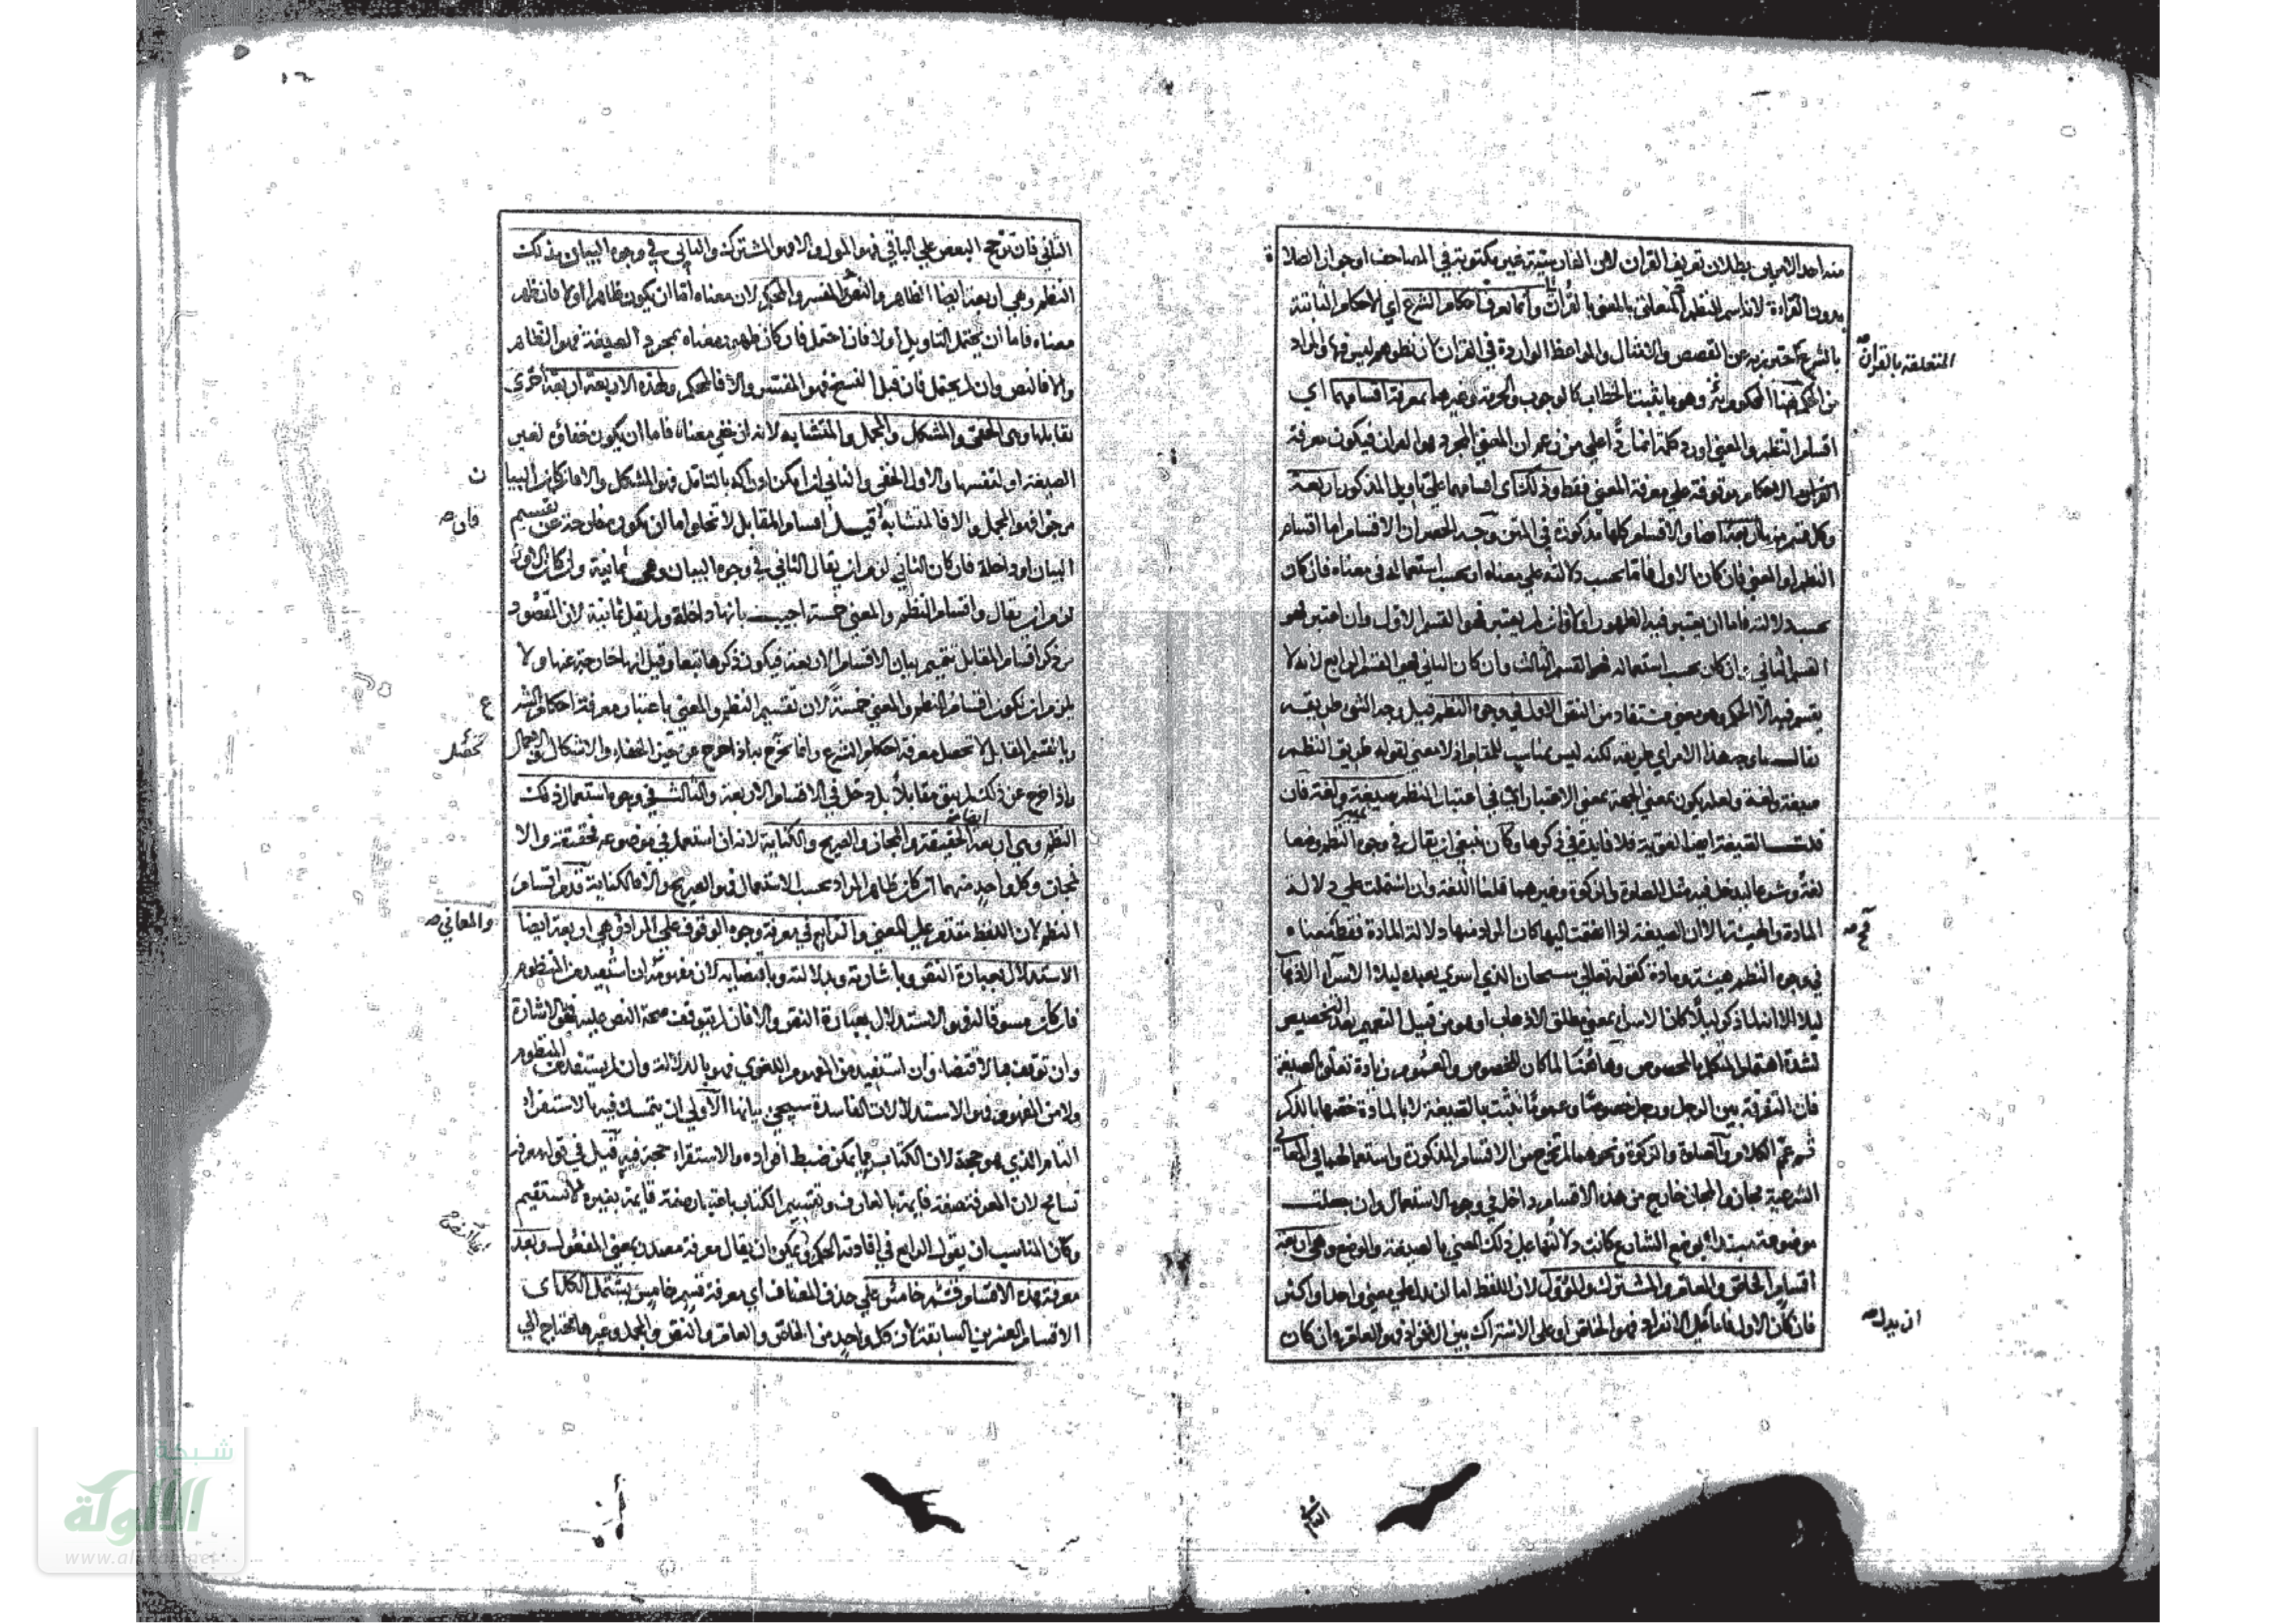 منه احد الامرين بطلان تعريف القران لان الفارسية غير مكتوبة في المصاحف او جواز الصلاة
بدون القراءة لانه اسم للنظم المتعلق بالمعنى بالقرآن وانما يعرف احكام الشرع اي الاحكام الثابتة
بالشرع احترز به عن القصص والامثال والمواعظ الواردة في القران لان نظرهم ليس فيها والمراد
المتعلقة بالقران صح
من الحكم هنا المحكوم به وهو ما يثبت بالخطاب كالوجوب والحرمة وغيرهما بمعرفة اقسامهما اي
اقسام النظم والمعنى اورد كلمة انما ردا على من زعم ان المعنى المجرد هو القران فيكون معرفة
الاحكام موقوفة على معرفة المعنى فقط وذلك اي اقسامهما على تاويل المذكور اربعة
وكل قسم منه اربعة ايضا والاقسام كلها مذكورة في المتن وجه الحصر ان الاقسام اما اقسام
النظم او المعنى فان كان الاول فاما بحسب دلالته على معناه او بحسب استعماله في معناه فان كان
بحسب دلالته فاما ان يعتبر فيه الظهور او لا فان لم يعتبر فهو القسم الاول وان اعتبر فهو
القسم الثاني وان كان بحسب استعماله فهو القسم الثالث وان كان الثاني فهو القسم الرابع لانه لا
يقسم فيه الا الحكم وهو معنى مستفاد من النص الاول في وجوه النظم قيل وجه الشئ طريقه
يقال ما وجه هذا الامر اي طريقه لكنه ليس بمناسب للمقام اذ لا معنى لقوله طريق النظم
صيغة ولغة ولعله يكون بمعنى الجهة بمعنى الاعتبار اي في اعتبار النظم صيغة ولغة فان
قلت الصيغة ايضا لغوية فلا فايدة في ذكرها وكان ينبغي ان يقال في وجوه النظم وضعا
لغة وشرعا ليدخل فيه مثل الصلوة والزكوة وغيرهما قلنا اللغة وان اشتملت على دلالة
المادة والهيئة الا ان الصيغة اذا انضمت اليها كان المراد منها دلالة المادة فقط فمعناه
في وجوه النظم هيئة ومادة كقوله تعالى سبحان الذي اسرى بعبده ليلا الاسراء الذهاب
ليلا الا انه لما ذكر ليلا كان الاسراء بمعنى مطلق الاذهاب او هو من قبيل التعميم بعد التخصيص
لشدة اهتمام المتكلم بالمخصوص وهاهنا لما كان للخصوص والعموم زيادة تعلق بالصيغة
فان التفرقة بين الرجل ورجل خصوصا وعموما تثبت بالصيغة لا بالمادة خصها بالذكر
ثم عم الكلام والصلوة والزكوة ونحوهما لم تخرج من الاقسام المذكورة واستعمالهما في المعاني
الشرعية مجاز والمجاز خارج من هذه الاقسام داخل في وجوه الاستعمال وان جعلت
موضوعة مبتداة بوضع الشارع كانت دلالتها على ذلك المعنى بالصيغة والوضع وهي اربعة
اقسام الخاص والعام والمشترك والمؤول لان اللفظ اما ان يدل على معنى واحد او اكثر
ان يدل صح
فان كان الاول فاما على الانفراد فهو الخاص او على الاشتراك بين الافراد فهو العام وان كان
الثاني فان ترجح البعض على الباقي فهو المؤول والا فهو المشترك والثاني في وجوه البيان بذلك
النظم وهي اربعة ايضا الظاهر والنص والمفسر والمحكم لان معناه اما ان يكون ظاهرا او لا فان ظهر
معناه فاما ان يحتمل التاويل او لا فان احتمل فان كان ظهور معناه بمجرد الصيغة فهو الظاهر
والا فالنص وان لم يحتمل فان قبل النسخ فهو المفسر والا فالمحكم ولهذه الاربعة اربعة اخرى
تقابلها وهي الخفي والمشكل والمجمل والمتشابه لانه ان خفي معناه فاما ان يكون خفاؤه لغير
الصيغة او لنفسها والاول الخفي والثاني ان امكن ادراكه بالتامل فهو المشكل والا فان كان البيان
مرجوا فهو المجمل والا فالمتشابه قيل اقسام المقابل لا تخلو اما ان يكون خارجة عن تقسيم
البيان او داخلة فان كان الثاني لزم ان يقال الثاني في وجوه البيان وهي ثمانية وان كان الاول
لزم ان يقال واقسام النظم والمعنى خمسة اجيب بانها داخلة ولم يقل ثمانية لان المقصود
من ذكر اقسام المقابل تتميم بيان الاقسام الاربعة فيكون ذكرها تبعا وقيل انها خارجة عنها ولا
يلزم ان يكون اقسام النظم والمعنى خمسة لان تقسيم النظم والمعنى باعتبار معرفة احكام الشرع
وبالقسم المقابل لا تحصل معرفة احكام الشرع وانما تخرج به اذا خرج عن حيز الخفاء والاشكال والاجمال
واذا خرج عن ذلك لم يبق مقابلا بل دخل في الاقسام الاربعة والثالث في وجوه استعمال ذلك
النظم وهي اربعة الحقيقة والمجاز والصريح والكناية لانه ان استعمل في موضوعه فحقيقة والا
فمجاز وكل واحد منهما ان كان ظاهر المراد بحسب الاستعمال فهو الصريح والا فالكناية قدم اقسام
النظم لان اللفظ مقدم على المعنى والرابع في معرفة وجوه الوقوف على المراد وهي اربعة ايضا
والمعاني صح
الاستدلال بعبارة النص وباشارته وبدلالته وباقتضائه لان مفهومه ان استفيد من المنظوم
فان كان مسوقا له فهو الاستدلال بعبارة النص والا فان لم يتوقف صحة النص عليه فهو الاشارة
وان توقف فهو الاقتضاء وان استفيد من المفهوم اللغوي فهو بالدلالة وان لم يستفد من المنظوم
ولا من المفهوم فهو الاستدلالات الفاسدة سيجئ بيانها الاولى ان يتمسك فيه بالاستقراء
التام الذي هو حجة لان الكتاب مما يمكن ضبط افراده والاستقراء حجة فيه قيل في قوله معرفة
تسامح لان المعرفة صفة قايمة بالعارف وتقسيم الكتاب باعتبار صفة قايمة بغيره لا يستقيم
وكان المناسب ان يقول الرابع في افادته الحكم ويمكن ان يقال معرفة مصدر بمعنى المفعول وبعد
معرفة هذه الاقسام قسم خامس على حذف المضاف اي معرفة قسم خامس يشتمل الكل اي
الاقسام العشرين السابقة لان كل واحد من الخاص والعام والنص والمجمل وغيرها يحتاج الى